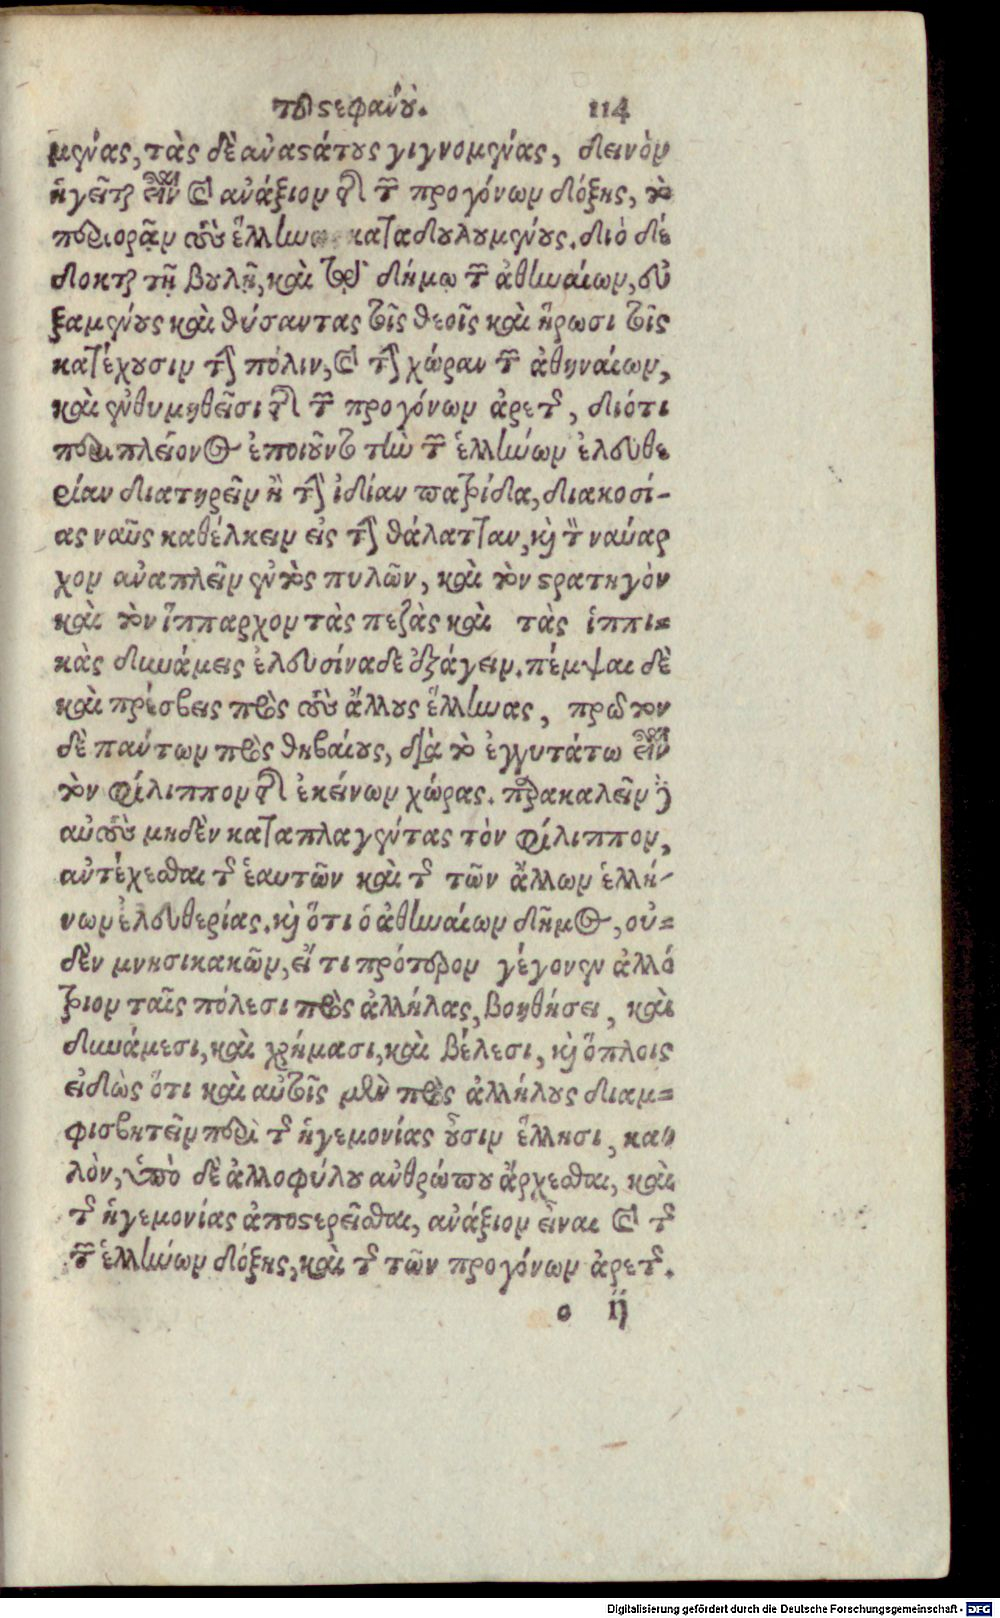 τοῦ στεφάνου. 114
μένας, τὰς δὲ ἀναστάτους γιγνομένας, δεινὸν
ἡγεῖται εἶναι καὶ ἀνάξιον τῆς τῶν προγόνων δόξης, τὸ
περιορᾷν τοὺς ἕλληνας καταδουλουμένους. διὸ δέ
δοκται τῇ βουλῇ, καὶ τῷ δήμῳ τῶν ἀθηναίων, εὐ
ξαμένους καὶ θύσαντας τοῖς θεοῖς καὶ ἥρωσι τοῖς
κατέχουσιν τὴν πόλιν, καὶ τὴν χώραν τῶν ἀθηναίων,
καὶ ἐνθυμηθεῖσι τῆς τῶν προγόνων ἀρετῆς, διότι
περὶ πλείονος ἐποιοῦντο τὴν τῶν ἑλλήνων ἐλευθε
ρίαν διατηρεῖν ἢ τὴν ἰδίαν πατρίδα, διακοσί-
ας ναῦς καθέλκειν εἰς τὴν θάλατταν, καὶ τὸν ναύαρ
χον ἀναπλεῖν ἐντὸς πυλῶν, καὶ τὸν στρατηγὸν
καὶ τὸν ἵππαρχον τὰς πεζὰς καὶ τὰς ἱππι=
κὰς δυνάμεις ἐλευσίναδε ἐξάγειν. πέμψαι δὲ
καὶ πρέσβεις πρὸς τοὺς ἄλλους ἕλληνας, πρῶτον
δὲ πάντων πρὸς θηβαίους, διὰ τὸ ἐγγυτάτω εἶναι
τὸν φίλιππον τῆς ἐκείνων χώρας. παρακαλεῖν δὲ
αὐτοὺς μηδὲν καταπλαγέντας τὸν φίλιππον,
ἀντέχεσθαι τῆς ἑαυτῶν καὶ τῆς τῶν ἄλλων ἑλλή-
νων ἐλευθερίας. καὶ ὅτι ὁ ἀθηναίων δῆμος, οὐ=
δὲν μνησικακῶν, εἴ τι πρότερον γέγονεν ἀλλό
τριον ταῖς πόλεσι πρὸς ἀλλήλας, βοηθήσει, καὶ
δυνάμεσι, καὶ χρήμασι, καὶ βέλεσι, καὶ ὅπλοις
εἰδὼς ὅτι καὶ αὐτοῖς μὲν πρὸς ἀλλήλους διαμ=
φισβητεῖν περὶ τῆς ἡγεμονίας οὖσιν ἕλλησι, κα
λὸν, ὑπὸ δὲ ἀλλοφύλου ἀνθρώπου ἄρχεσθαι, καὶ
τῆς ἡγεμονίας ἀποστερεῖσθαι, ἀνάξιον εἶναι καὶ τῆς
τῶν ἑλλήνων δόξης, καὶ τῆς τῶν προγόνων ἀρετῆς.
o ij
Digitalisierung gefördert durch die Deutsche Forschungsgemeinschaft - DFG